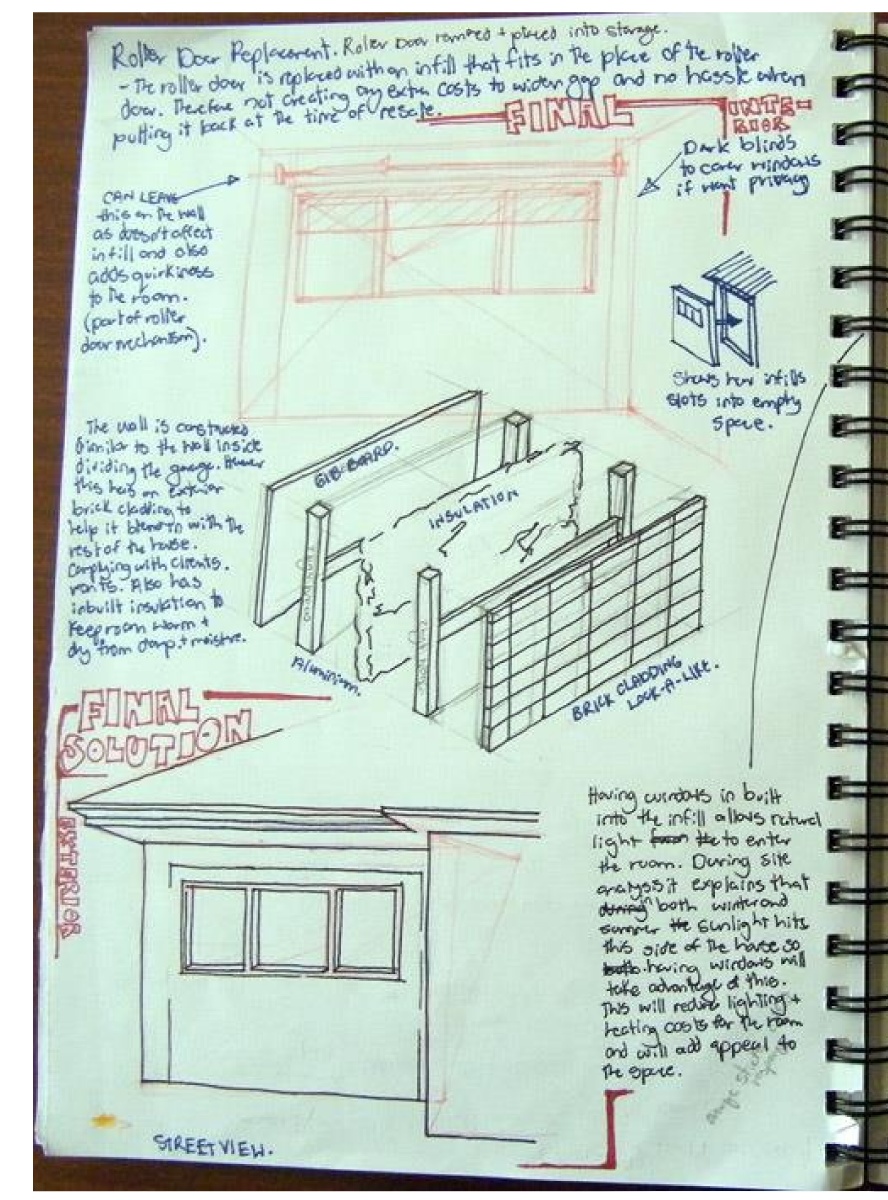 Roller Door Replacement. Roller Door removed + placed into storage.
- The roller door is replaced with an infill that fits in the place of the roller
door. Therefore not creating any extra costs to widen gap and no hassle when
putting it back at the time of resale.
FINAL
INTE-
RIOR
Dark blinds
to cover windows
if want privacy
CAN LEAVE
this on the wall
as doesn't affect
infill and also
adds quirkiness
to the room.
(part of roller
door mechanism).
Shows how infills
slots into empty
space.
The wall is constructed
similar to the wall inside
dividing the garage. However
this has an exterior
brick cladding to
help it blend in with the
rest of the house.
Complying with clients.
wants. Also has
inbuilt insulation to
keep room warm +
dry from damp + moisture.
GIB-BOARD.
INSULATION
Aluminium.
BRICK CLADDING
LOOK-A-LIKE.
FINAL
SOLUTION
EXTERIOR
Having windows in built
into the infill allows natural
light to enter
the room. During site
analysis it explains that
both winter and
summer the sunlight hits
this side of the house so
having windows will
take advantage of this.
This will reduce lighting +
heating costs for the room
and will add appeal to
the space.
STREET VIEW.